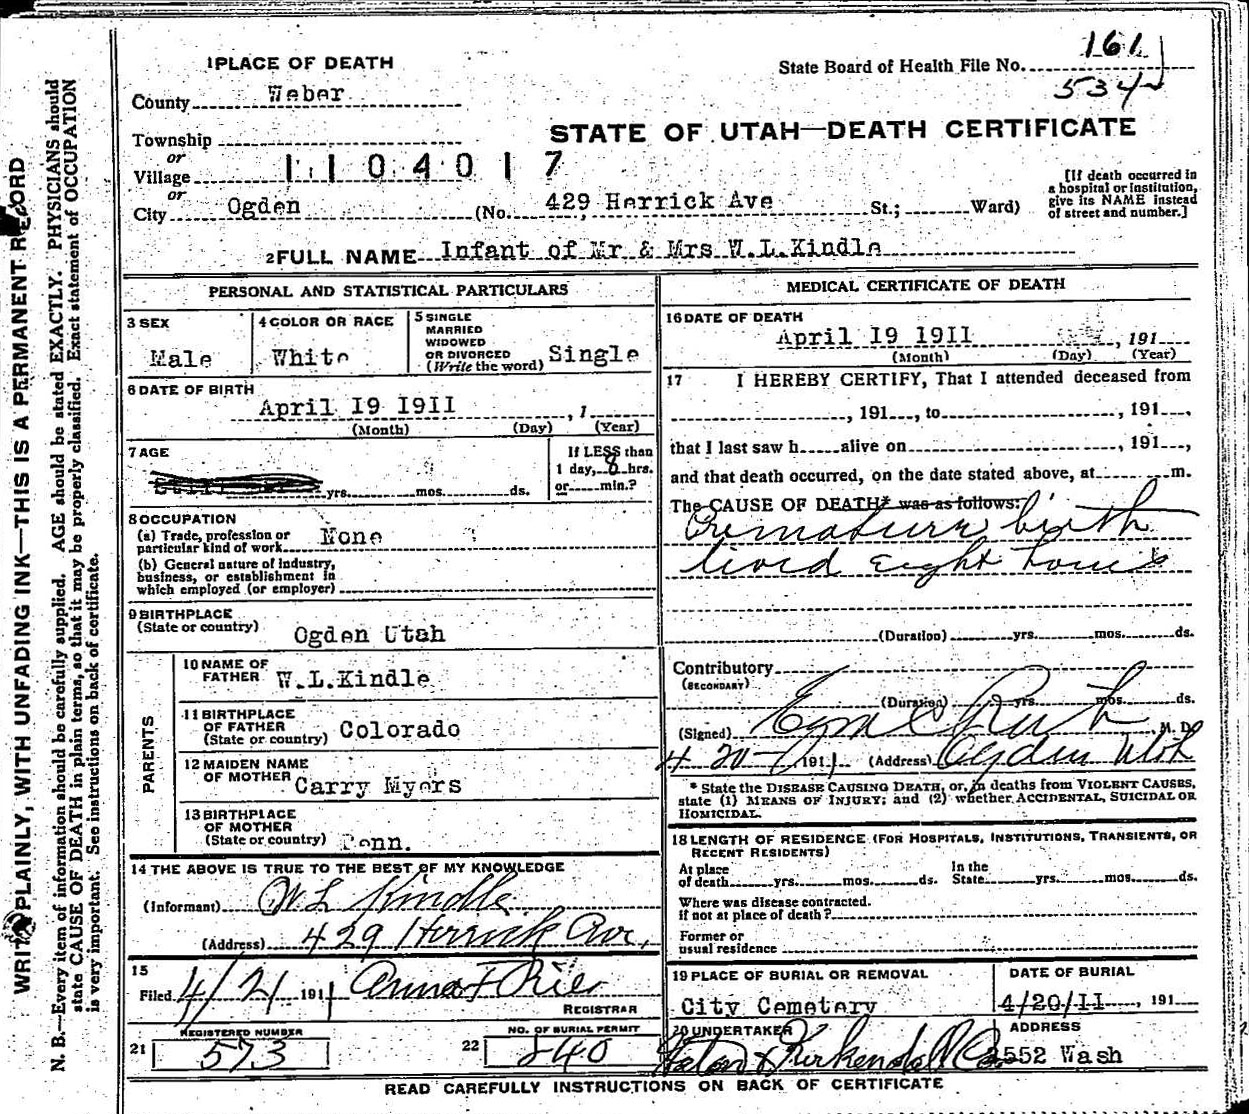 1 PLACE OF DEATH
County Weber
Township
or
Village
1 1 0 4 0 1 7
or
City Ogden (No. 429 Herrick Ave St.; Ward)
State Board of Health File No. 161
534
STATE OF UTAH—DEATH CERTIFICATE
[If death occurred in
a hospital or institution,
give its NAME instead
of street and number.]
2 FULL NAME Infant of Mr & Mrs W.L.Kindle
PERSONAL AND STATISTICAL PARTICULARS
3 SEX
Male
4 COLOR OR RACE
White
5 SINGLE
MARRIED
WIDOWED
OR DIVORCED
(Write the word) Single
6 DATE OF BIRTH
April I9 I9II , 1
(Month) (Day) (Year)
7 AGE
yrs. mos. ds.
If LESS than
1 day, 8 hrs.
or min.?
8 OCCUPATION
(a) Trade, profession or
particular kind of work None
(b) General nature of industry,
business, or establishment in
which employed (or employer)
9 BIRTHPLACE
(State or country) Ogden Utah
PARENTS
10 NAME OF
FATHER W.L.Kindle
11 BIRTHPLACE
OF FATHER
(State or country) Colorado
12 MAIDEN NAME
OF MOTHER Carry Myers
13 BIRTHPLACE
OF MOTHER
(State or country) Penn.
14 THE ABOVE IS TRUE TO THE BEST OF MY KNOWLEDGE
(Informant) W L Kindle
(Address) 429 Herrick Ave,
15
Filed 4/21 1911
REGISTRAR
REGISTERED NUMBER
21 573
NO. OF BURIAL PERMIT
22 540
MEDICAL CERTIFICATE OF DEATH
16 DATE OF DEATH
April I9 I9II , 191
(Month) (Day) (Year)
17 I HEREBY CERTIFY, That I attended deceased from
, 191 , to , 191 ,
that I last saw h alive on , 191 ,
and that death occurred, on the date stated above, at m.
The CAUSE OF DEATH* was as follows:
Premature birth
lived Eight hours
(Duration) yrs. mos. ds.
Contributory
(SECONDARY)
(Duration) yrs. mos. ds.
(Signed) M. D.
4-20- 1911 (Address) Ogden Utah
* State the DISEASE CAUSING DEATH, or, in deaths from VIOLENT CAUSES,
state (1) MEANS OF INJURY; and (2) whether ACCIDENTAL, SUICIDAL OR
HOMICIDAL.
18 LENGTH OF RESIDENCE (FOR HOSPITALS, INSTITUTIONS, TRANSIENTS, OR
RECENT RESIDENTS)
At place
of death yrs. mos. ds.
In the
State yrs. mos. ds.
Where was disease contracted.
if not at place of death?
Former or
usual residence
19 PLACE OF BURIAL OR REMOVAL
City Cemetery
DATE OF BURIAL
4/20/II , 191
20 UNDERTAKER
Kirkendall Co
ADDRESS
2552 Wash
READ CAREFULLY INSTRUCTIONS ON BACK OF CERTIFICATE
WRITE PLAINLY, WITH UNFADING INK—THIS IS A PERMANENT RECORD
N. B.—Every item of information should be carefully supplied. AGE should be stated EXACTLY. PHYSICIANS should
state CAUSE OF DEATH in plain terms, so that it may be properly classified. Exact statement of OCCUPATION
is very important. See instructions on back of certificate.